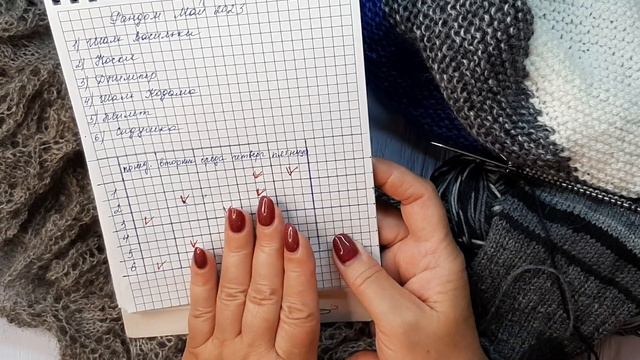 Рандом Май 2023
1) Шаль Васильки
2) Носки
3) Джемпер
4) Шаль Кодама
5) Жилет
6) Сидушка
понед. вторник среда четверг пятница
1
2
3
4
5
6